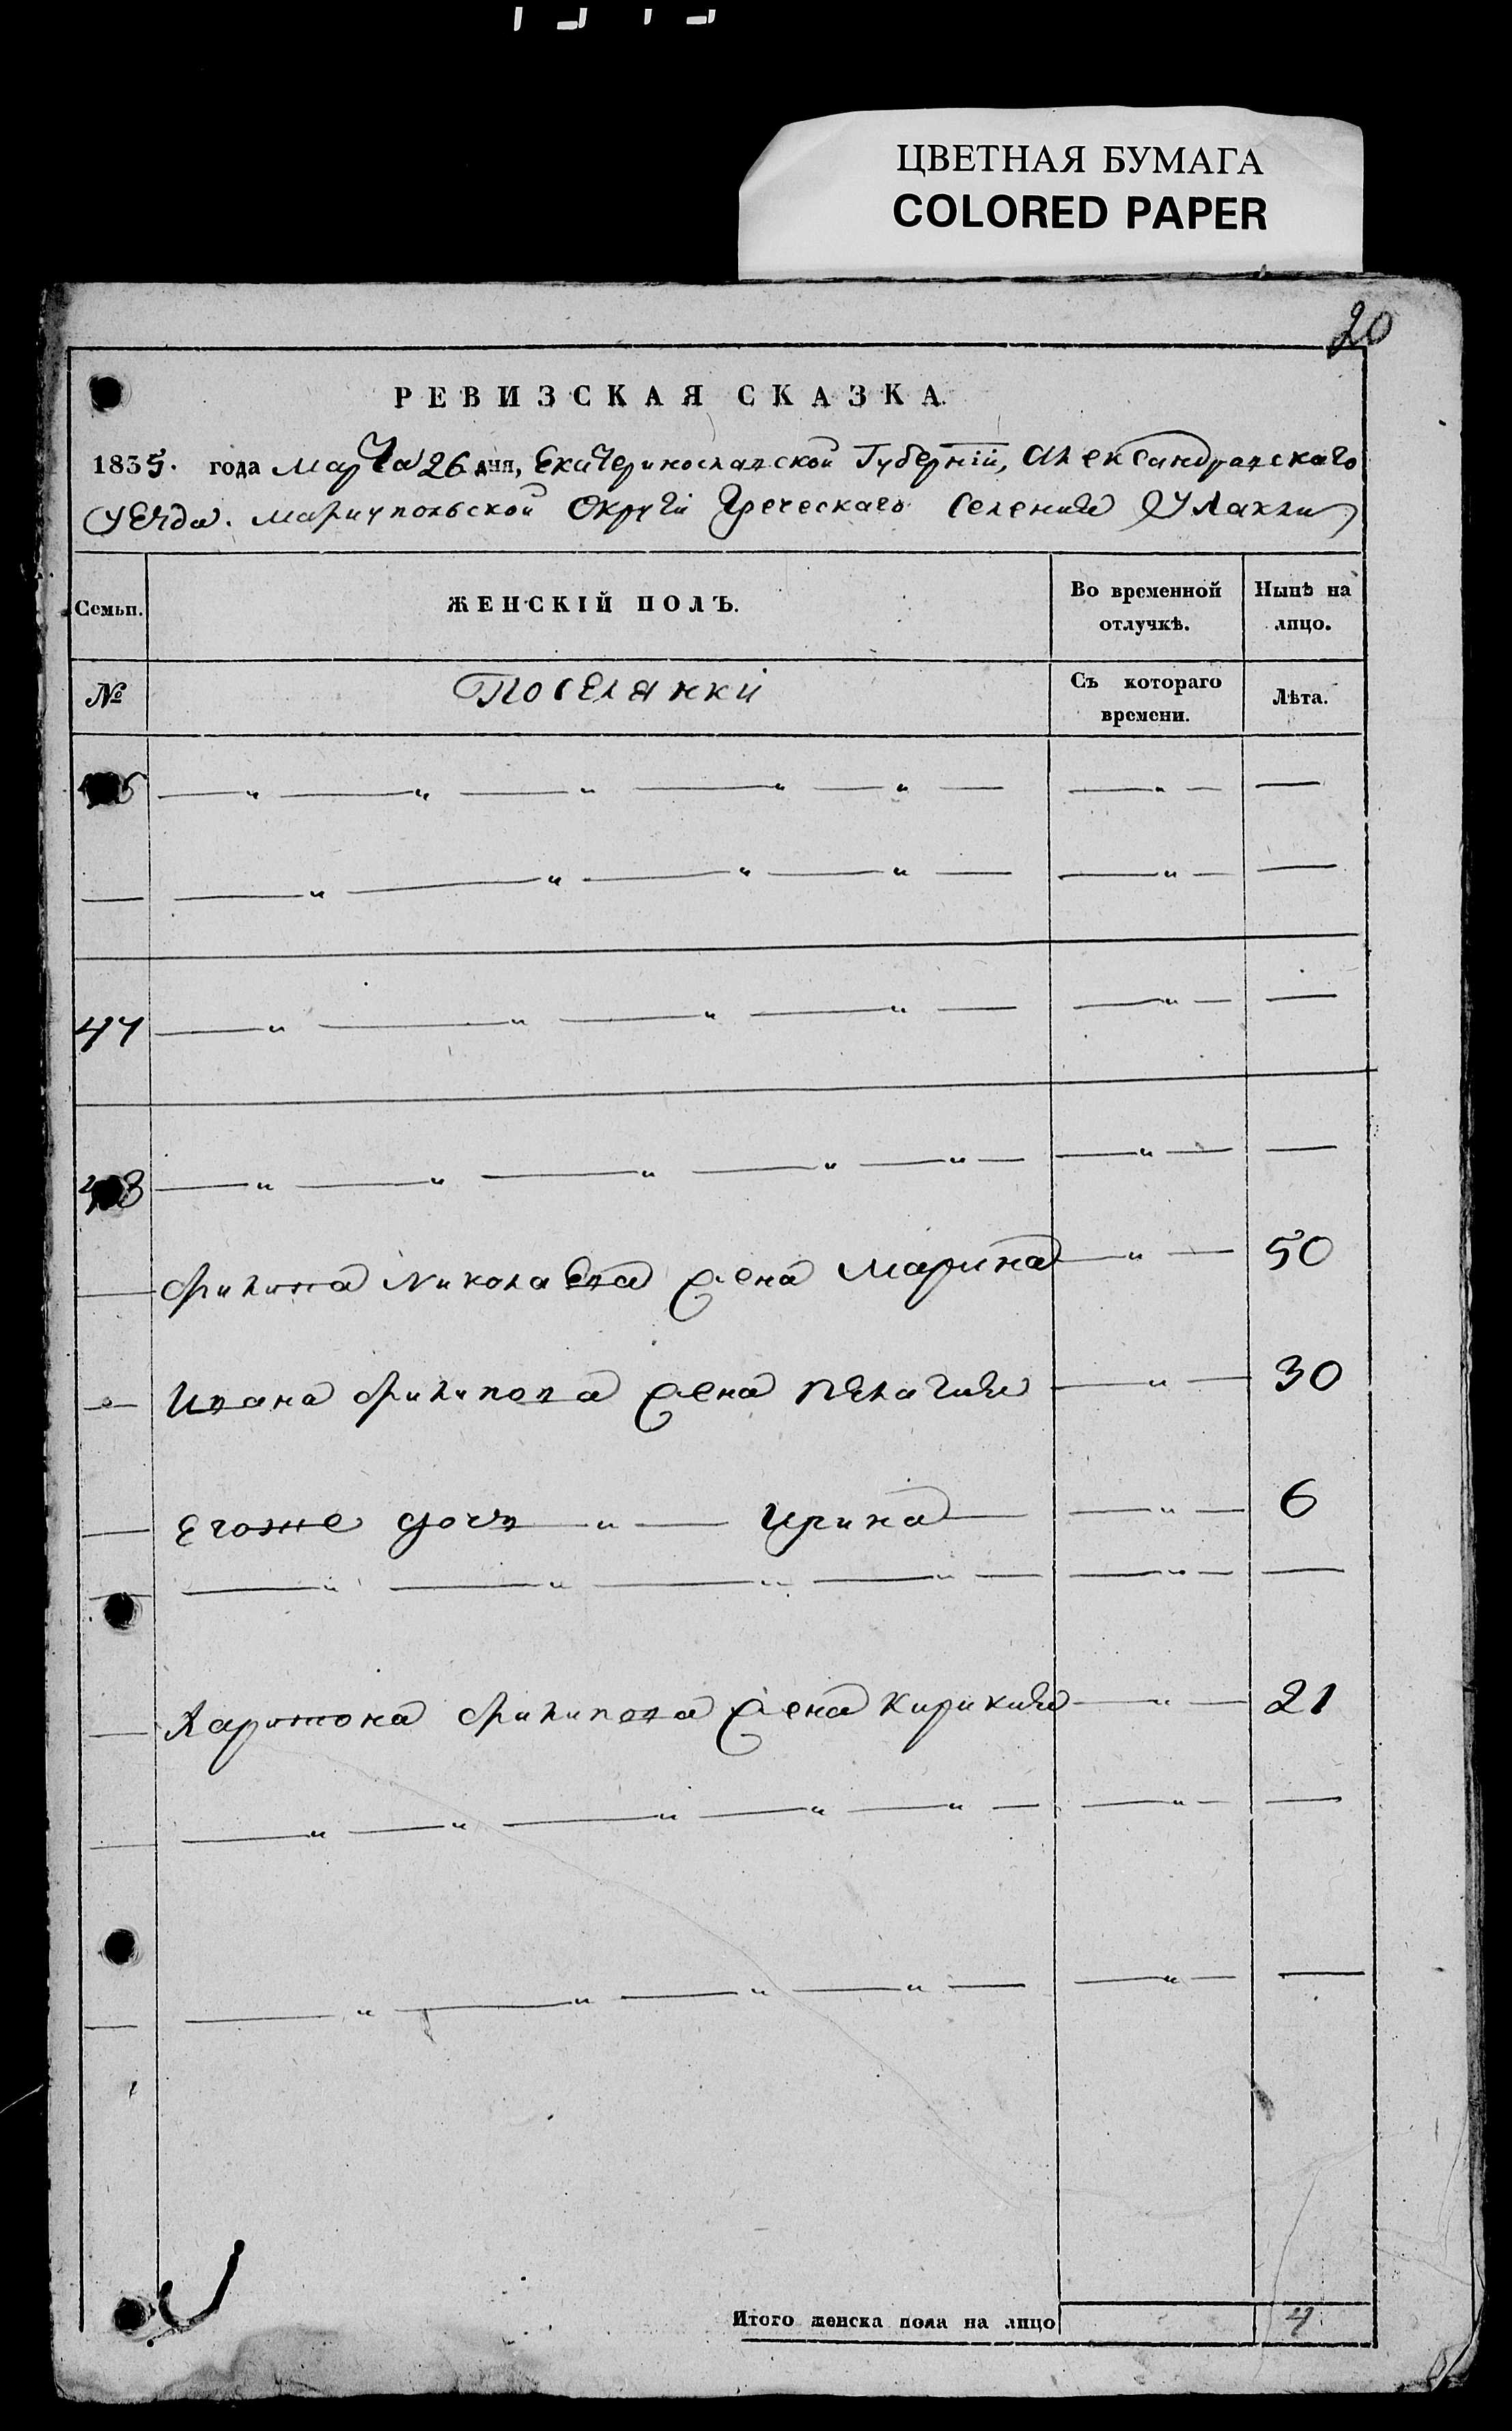 ЦВЕТНАЯ БУМАГА
COLORED PAPER
20
РЕВИЗСКАЯ СКАЗКА.
1835. года Марта 26 дня, Екатеринославской Губерніи, Александравскаго
Уезда. Мариупольской Округи Греческаго Селения Улаклы
Семьи. ЖЕНСКІЙ ПОЛЪ. Во временной отлучкѣ. Нынѣ на лицо.
№ Поселянки Съ котораго времени. Лѣта.
46 — " — " — " — " — " — — " — —
— — " — " — " — " — — " — —
47 — " — " — " — " — — " — —
48 — " — " — " — " — " — — " — —
— Филипа Николаева жена Марина — " — 50
— Ивана Филипова жена Пелагия — " — 30
— Егоже дочь — " — Ирина — — " — 6
— — " — " — " — " — — " — —
— Харитона Филипова жена Кирикия — " — 21
— — " — " — " — " — " — — " — —
— — " — " — " — " — — " — —
Итого женска пола на лицо 4